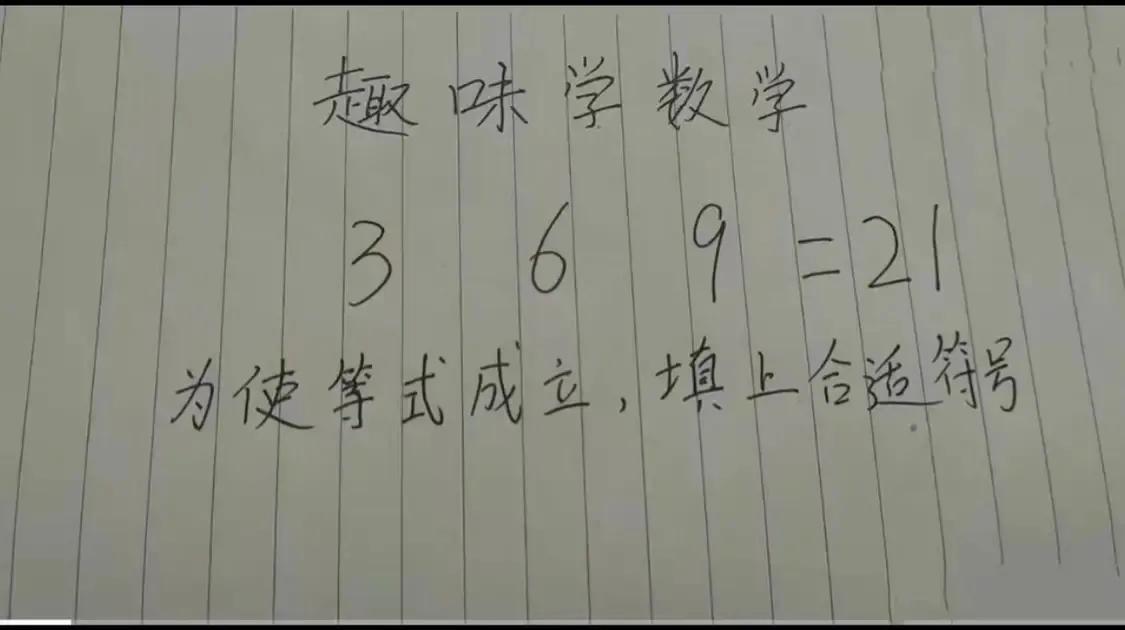 趣味学数学
3 6 9 = 21
为使等式成立,填上合适符号